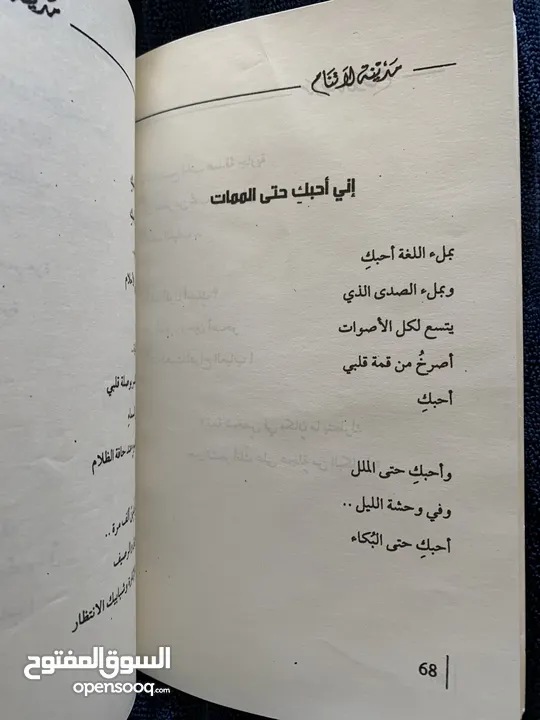 مدينة لا تنام
إني أحبكِ حتى الممات
بملء اللغة أحبكِ
وبملء الصدى الذي
يتسع لكل الأصوات
أصرخُ من قمة قلبي
أحبكِ
وأحبكِ حتى الملل
وفي وحشة الليل ..
أحبكِ حتى البُكاء
68
وصلة قلبي
حافة الظلام
ألف مرة ..
الرصيف
وشبابيك الانتظار
السوق المفتوح
opensooq.com